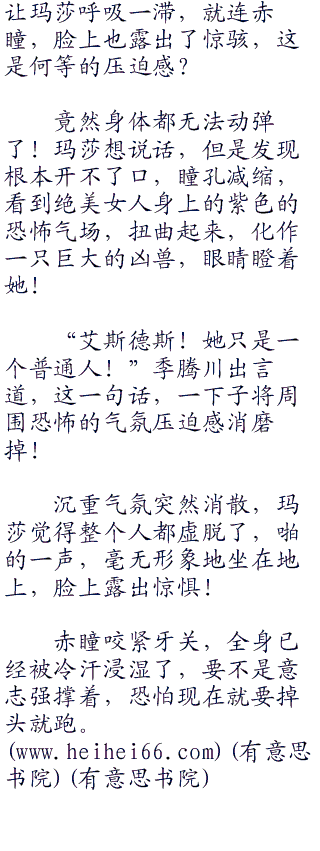 让玛莎呼吸一滞，就连赤
瞳，脸上也露出了惊骇，这
是何等的压迫感？
竟然身体都无法动弹
了！玛莎想说话，但是发现
根本开不了口，瞳孔减缩，
看到绝美女人身上的紫色的
恐怖气场，扭曲起来，化作
一只巨大的凶兽，眼睛瞪着
她！
“艾斯德斯！她只是一
个普通人！”季腾川出言
道，这一句话，一下子将周
围恐怖的气氛压迫感消磨
掉！
沉重气氛突然消散，玛
莎觉得整个人都虚脱了，啪
的一声，毫无形象地坐在地
上，脸上露出惊惧！
赤瞳咬紧牙关，全身已
经被冷汗浸湿了，要不是意
志强撑着，恐怕现在就要掉
头就跑。
(www.heihei66.com)(有意思
书院)(有意思书院)